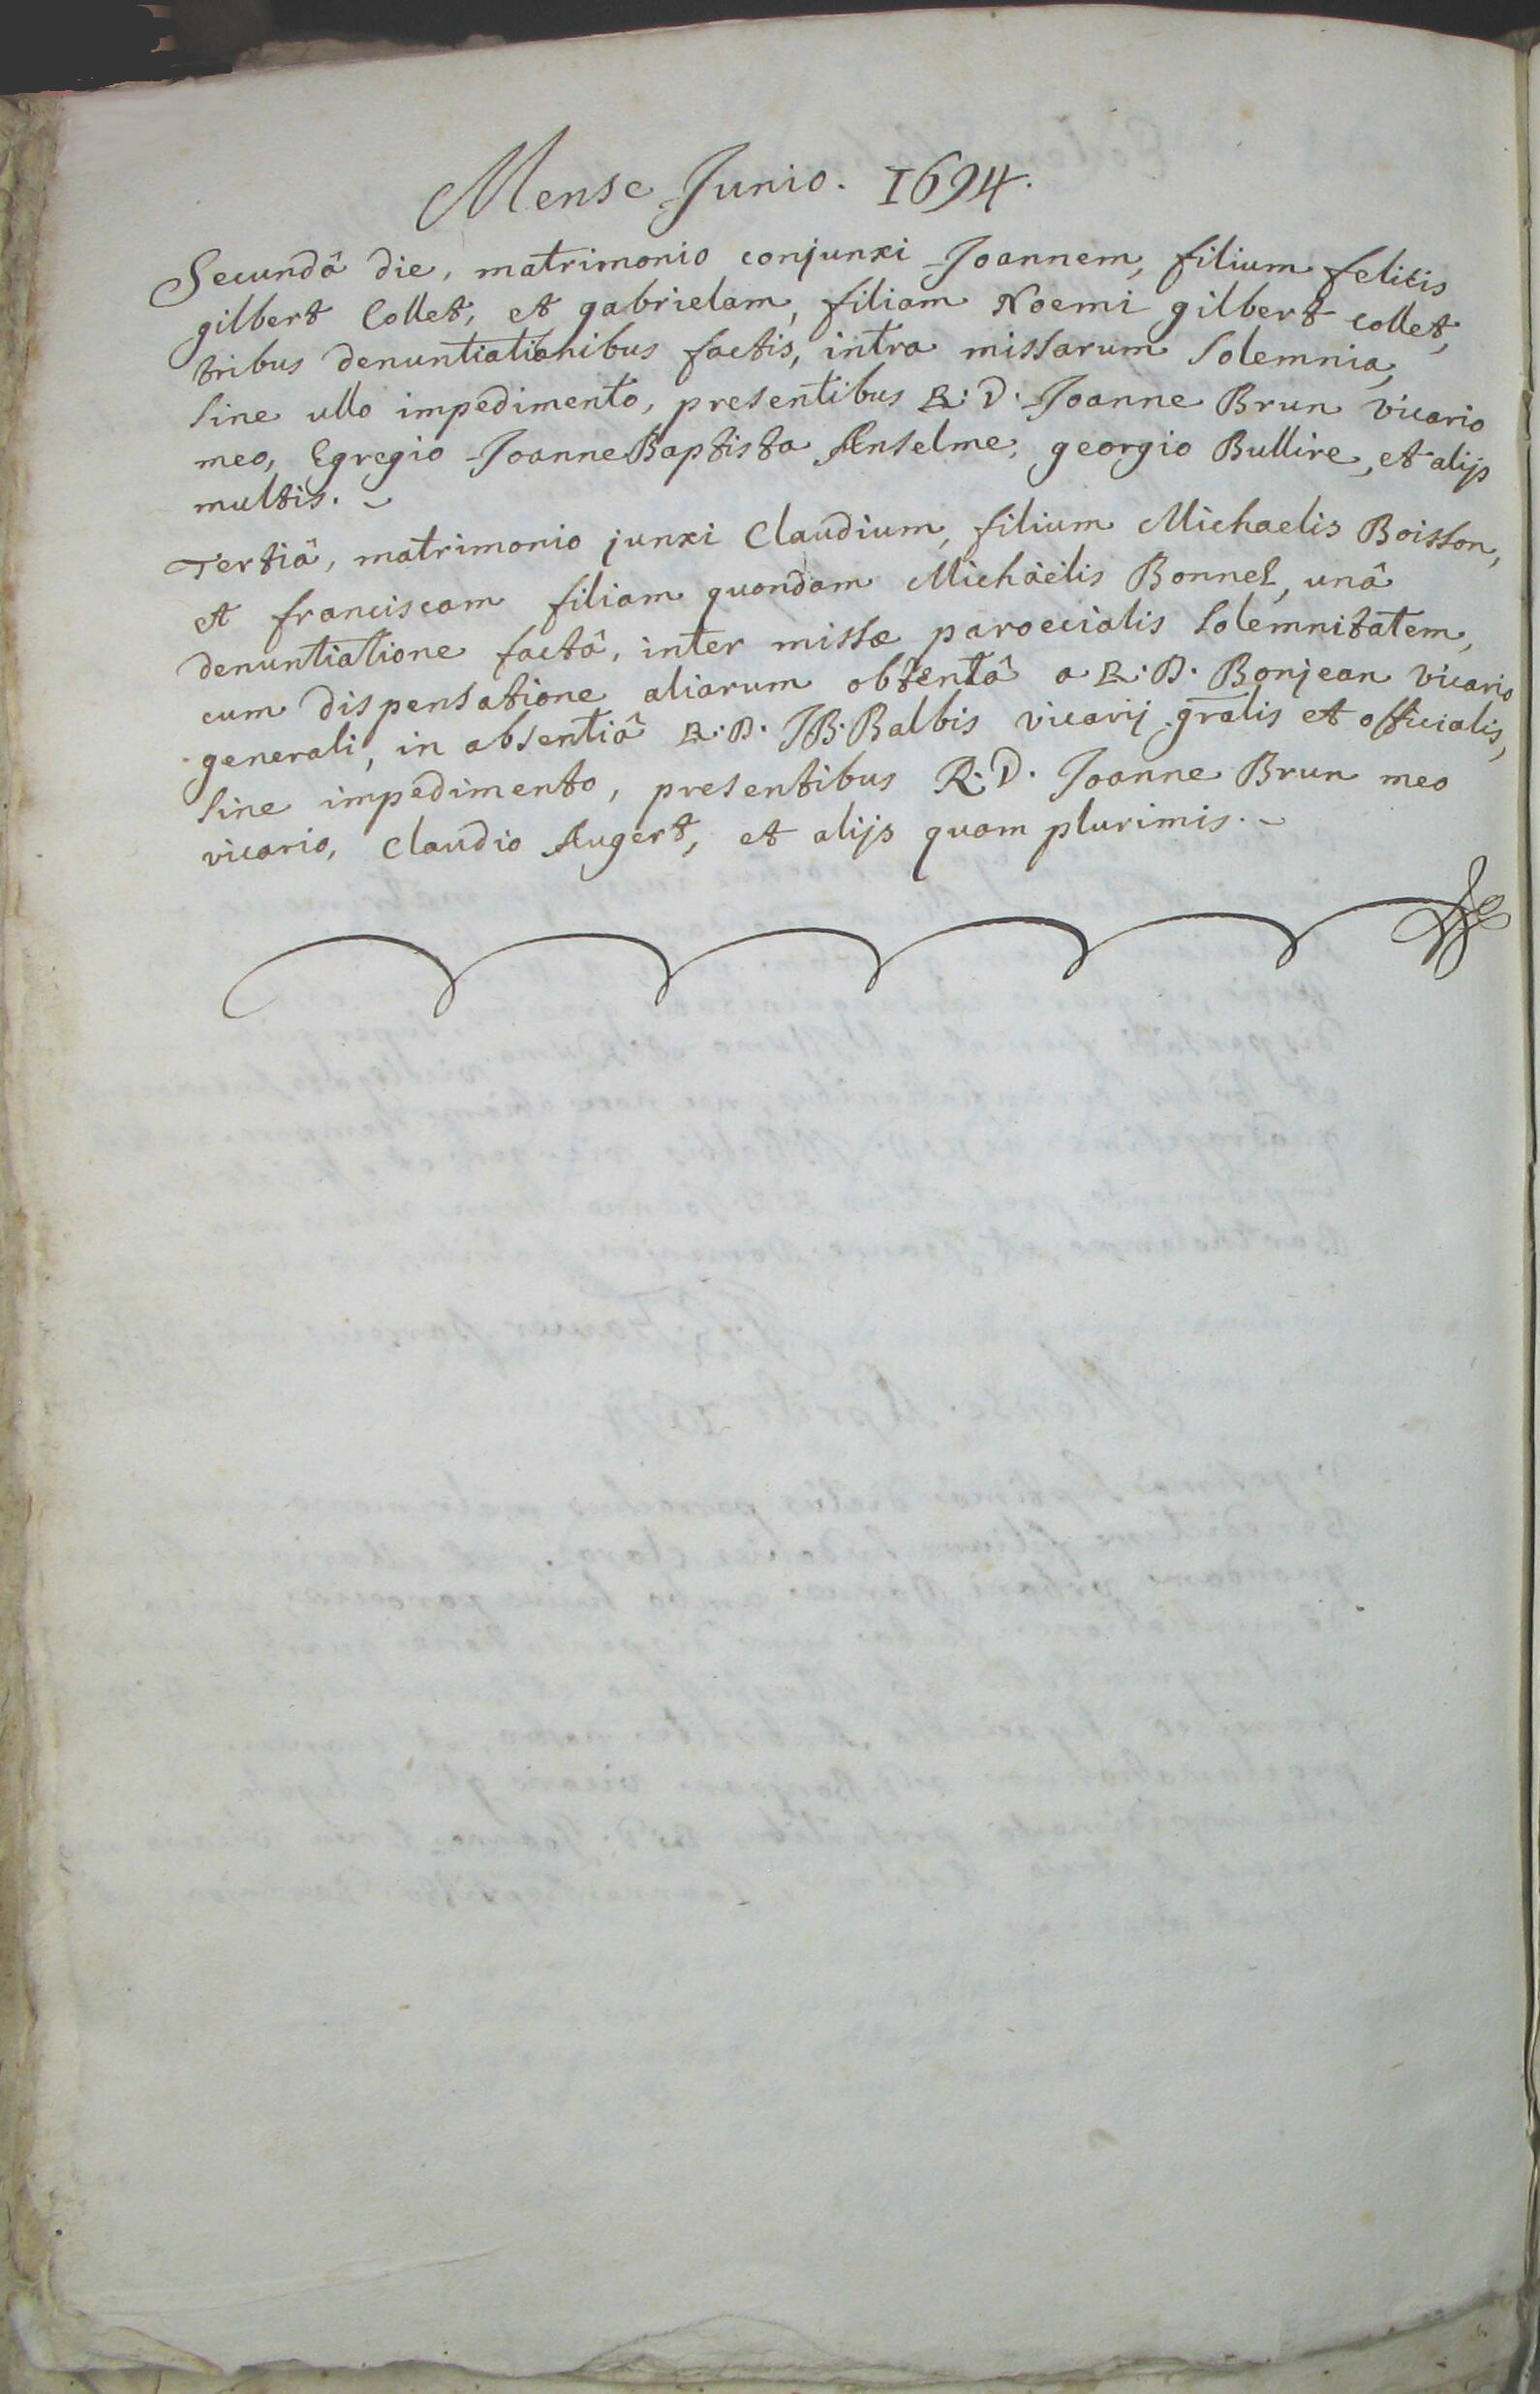 Mense Junio. 1694.
Secundâ die, matrimonio conjunxi Joannem, filium felicis
gilbert Collet, et gabrielam, filiam Noemi gilbert collet,
tribus denuntiationibus factis, intra missarum solemnia,
sine ullo impedimento, presentibus R. D. Joanne Brun vicario
meo, Egregio Joanne Baptista Anselme, georgio Bullire, et alijs
multis.
Tertiâ, matrimonio junxi Claudium, filium Michaelis Boisson,
et franciscam filiam quondam Michaëlis Bonnel, unâ
denuntiatione factâ, inter missæ paroecialis solemnitatem,
cum dispensatione aliarum obtentâ a R. D. Bonjean vicario
generali, in absentiâ R. D. JB. Balbis vicarij gr̄alis et officialis,
sine impedimento, presentibus R. D. Joanne Brun meo
vicario, Claudio Augert, et alijs quam plurimis.